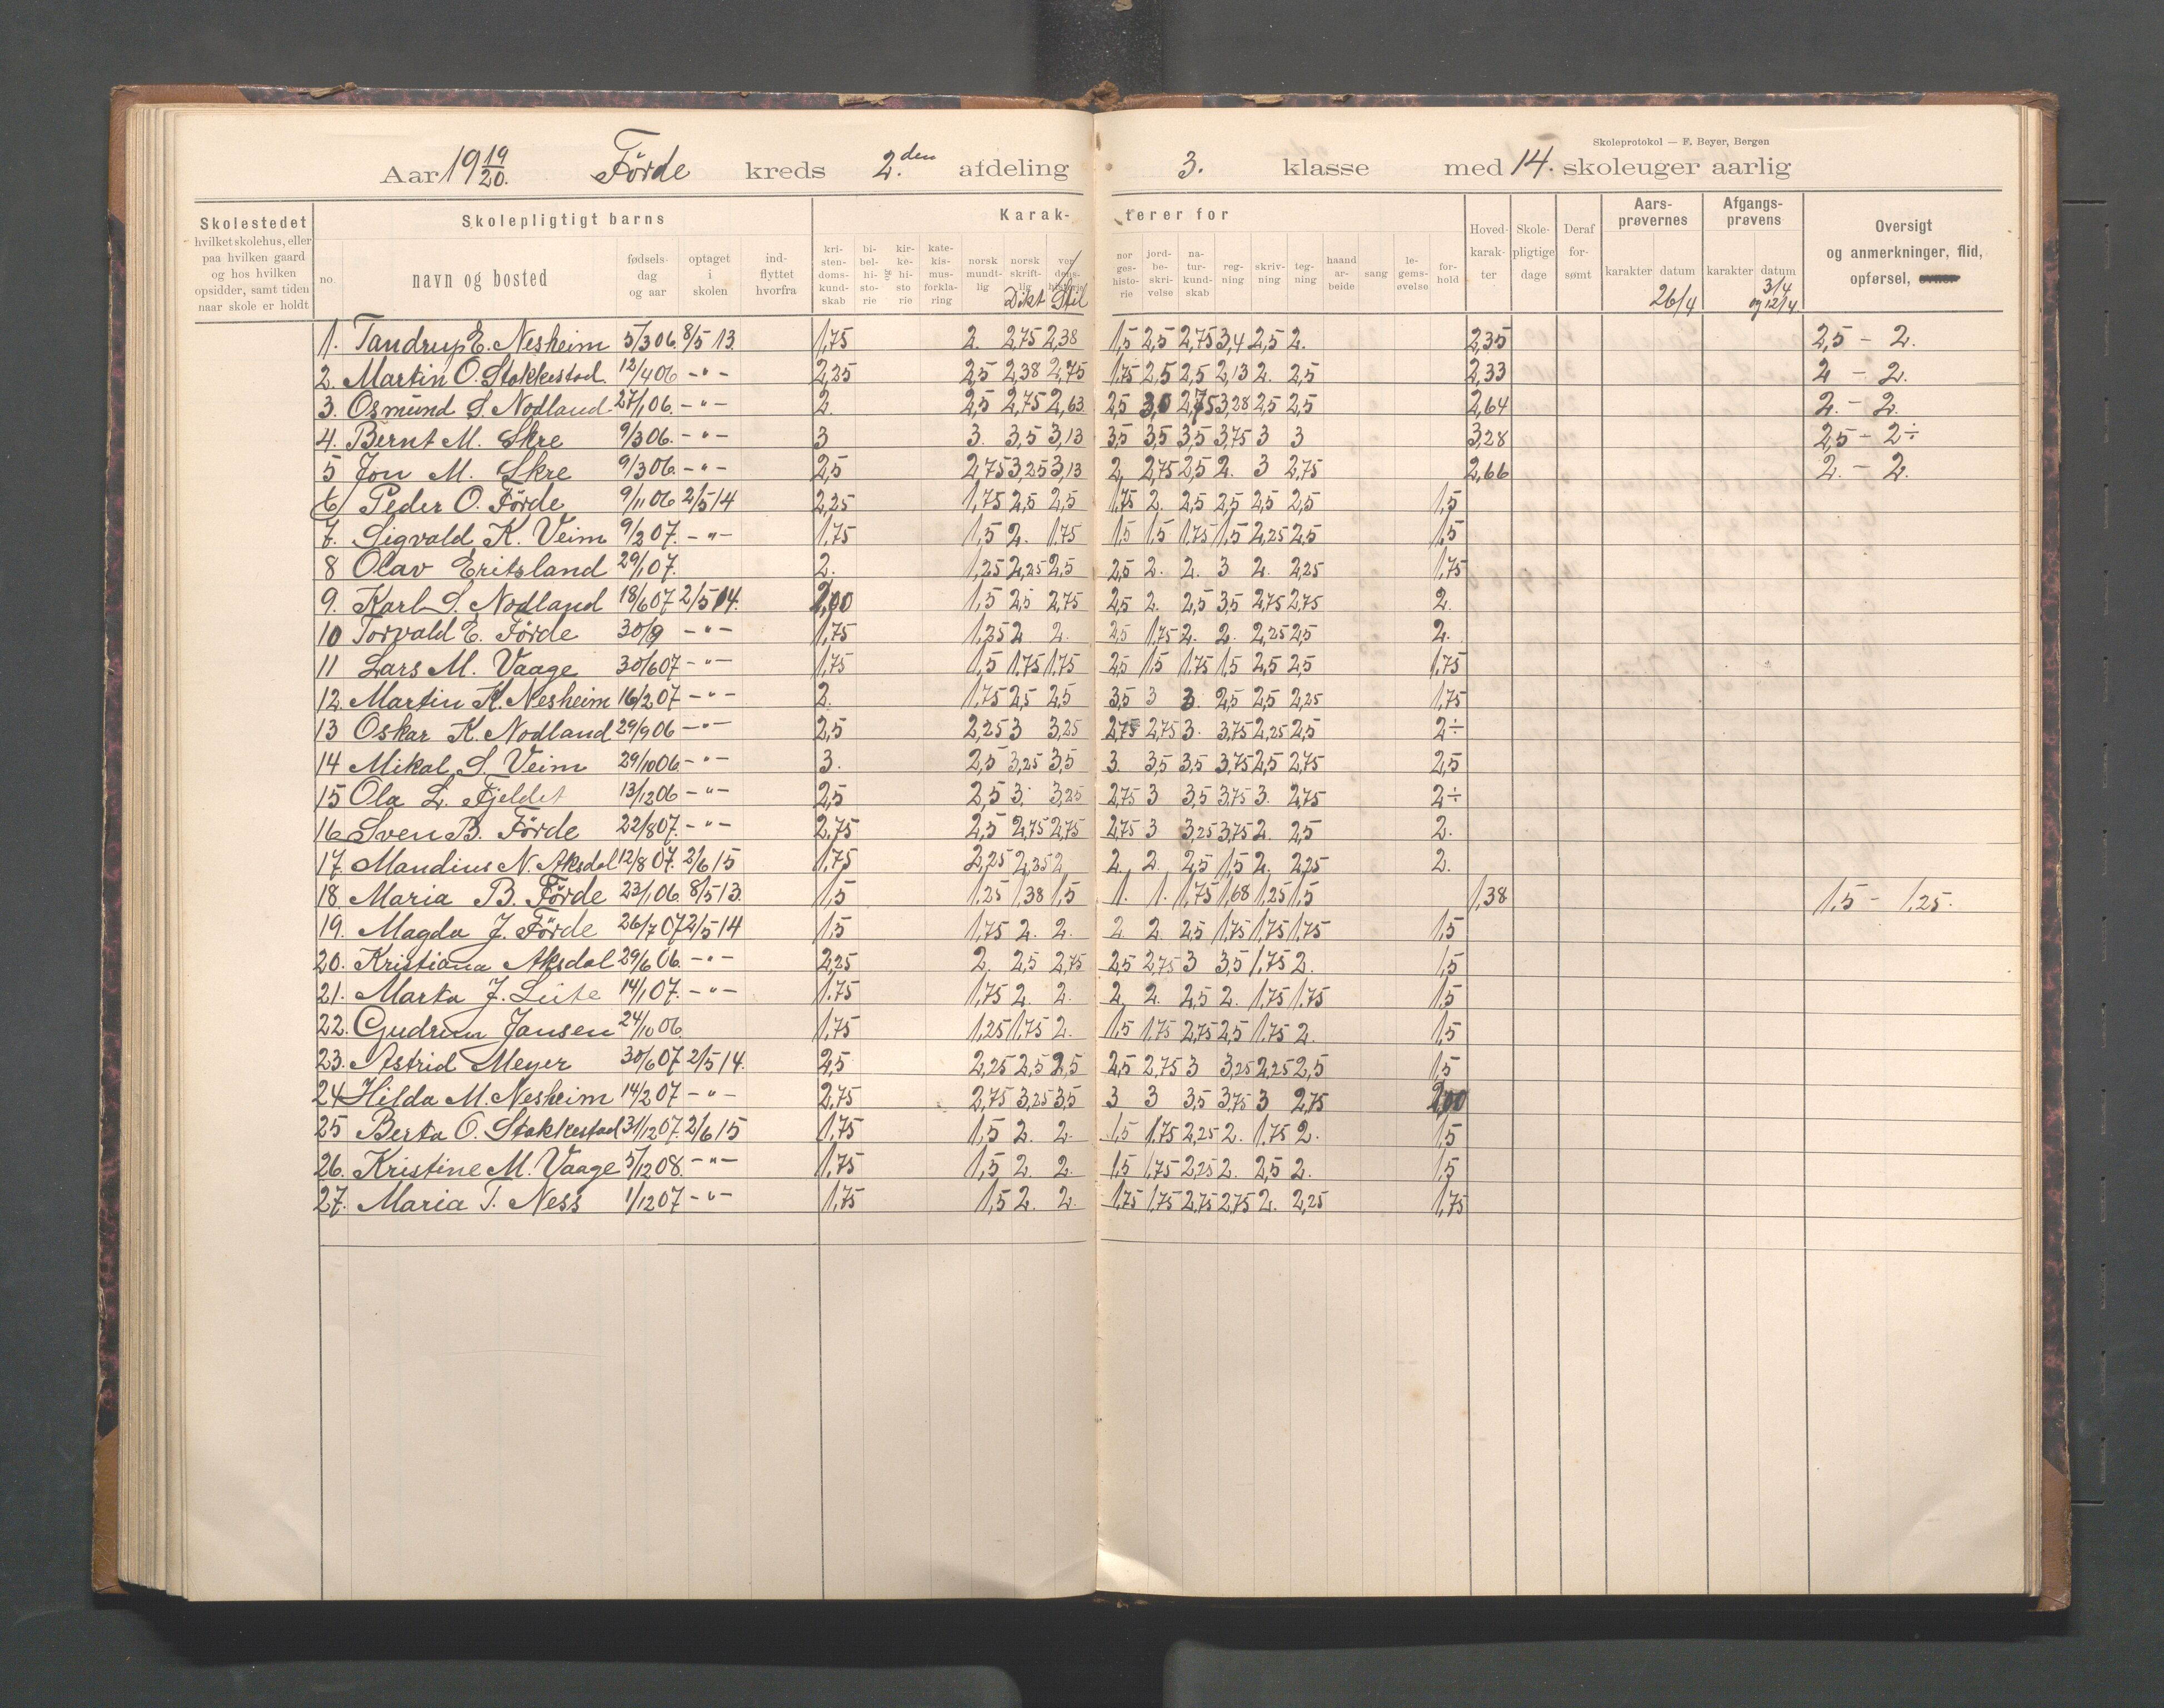 Skoleprotokol — F. Beyer, Bergen
Aar 19 19/20. Förde kreds 2.den afdeling 3. klasse med 14. skoleuger aarlig
Skolestedet hvilket skolehus, eller paa hvilken gaard og hos hvilken opsidder, samt tiden naar skole er holdt
Skolepligtigt barns
no. navn og bosted fødselsdag og aar optaget i skolen indflyttet hvorfra
Karakterer for
kristendomskundskab bibelhistorie og kirkehistorie katekismusforklaring norsk mundtlig norsk skriftlig Dikt verdenshistorie Stil norgeshistorie jordbeskrivelse naturkundskab regning skrivning tegning haandarbeide sang legemsøvelse forhold
Hovedkarakter Skolepligtige dage Deraf forsømt
Aarsprøvernes karakter datum 26/4
Afgangsprøvens karakter datum 3/4 og 12/4
Oversigt og anmerkninger, flid, opførsel, evner
1. Tandrup E. Nesheim 5/3 06. 8/5 13. 1,75 2. 2,75 2,38 1,5 2,5 2,75 3,4 2,5 2. 2,35 2,5 - 2.
2. Martin O. Stokkestad. 12/4 06 - " - 2,25 2,5 2,38 2,75 1,75 2,5 2,5 2,13 2. 2,5 2,33 2 - 2.
3. Osmund S. Nodland 27/1 06. - " - 2. 2,5 2,75 2,63 2,5 3,0 2,75 3,28 2,5 2,5 2,64 2. - 2.
4. Bernt M. Skre 9/3 06. - " - 3 3. 3,5 3,13 3,5 3,5 3,5 3,75 3 3 3,28 2,5 - 2÷
5 Jon M. Skre 9/3 06. - " - 2,5 2,75 3,25 3,13 2, 2,75 2,5 2. 3 2,75 2,66 2. - 2.
6 Peder O. Förde 9/11 06 2/5 14 2,25 1,75 2,5 2,5 1,75 2. 2,5 2,5 2,5 2,5 1,5
7. Sigvald K. Veim 9/2 07. - " - 1,75 1,5 2. 1,75 1,5 1,5 1,75 1,5 2,25 2,5 1,5
8 Olav Eritsland 29/1 07. 2. 1,25 2,25 2,5 2,5 2. 2. 3 2. 2,25 1,75
9. Karl S. Nodland 18/6 07 2/5 14. 2,00 1,5 2,5 2,75 2,5 2. 2,5 3,5 2,75 2,75 2.
10 Torvald E. Förde 30/9 - " - 1,75 1,25 2 2. 2,5 1,75 2. 2. 2,25 2,5 2.
11 Lars M. Vaage 30/6 07 - " - 1,75 1,5 1,75 1,75 2,5 1,5 1,75 1,5 2,5 2,5 1,75
12. Martin K. Nesheim 16/2 07 - " - 2. 1,75 2,5 2,5 3,5 3 3. 2,5 2,5 2,25 1,75
13 Oskar K. Nodland 29/9 06 - " - 2,5 2,25 3 3,25 2,75 2,75 3. 3,75 2,25 2,5 2÷
14 Mikal S. Veim 29/10 06. - " - 3. 2,5 3,25 3,5 3. 3,5 3,5 3,75 2,5 2,75 2,5
15 Ola L. Fjeldet 13/12 06 - " - 2,5 2,5 3. 3,25 2,75 3 3,5 3,75 3. 2,75 2÷
16 Sven B. Förde 22/8 07. - " - 2,75 2,5 2,75 2,75 2,75 3 3,25 3,75 2. 2,5 2.
17. Mandius N. Aksdal 12/8 07. 2/6 15 1,75 2,25 2,25 2 2. 2. 2,5 1,5 2. 2,25 2.
18. Maria B. Förde 23/1 06. 8/5 13. 1,5 1,25 1,38 1,5 1. 1. 1,75 1,68 1,25 1,5 1,38 1,5 - 1,25.
19. Magda J. Förde 26/7 07 2/5 14 1,5 1,75 2. 2. 2. 2. 2,5 1,75 1,75 1,75 1,5
20. Kristiana Aksdal 29/6 06. - " - 2,25 2. 2,5 2,75 2,5 2,75 3 3,5 1,75 2. 1,5
21. Marta J. Leite 14/1 07. - " - 1.75 1,75 2. 2. 2. 2. 2,5 2. 1,75 1,75 1,5
22. Gudrun Jansen 24/10 06. 1,75 1,25 1,75 2. 1,5 1,75 2,75 2,5 1,75 2. 1,5
23. Astrid Meyer 30/6 07 2/5 14. 2,5 2,25 2,5 2,5 2,5 2,75 3 3,25 2,25 2,5 1,5
24 Hilda M. Nesheim 14/2 07 - " - 2,75 2,75 3,25 3,5 3 3 3,5 3,75 3 2,75 2,00
25 Berta O. Stokkestad 31/12 07. 2/6 15 1,75 1,5 2. 2. 1,5 1,75 2,25 2. 1,75 2. 1,5
26. Kristine M. Vaage 5/12 08. - " - 1,75 1,5 2. 2. 1,5 1,75 2,25 2. 2,5 2. 1,5
27. Maria T. Ness 1/12 07 - " - 1,75 1,5 2. 2. 1,75 1,75 2,75 2,75 2. 2,25 1,75